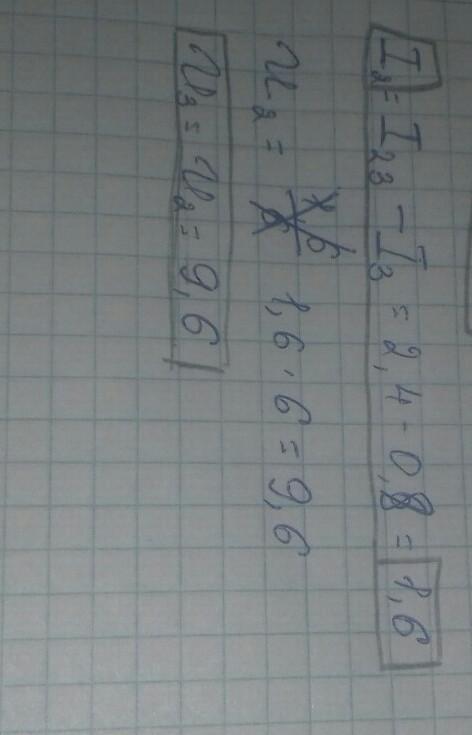 I₂ = I₂₃ - I₃ = 2,4 - 0,8 = 1,6
U₂ = 1,6 · 6 = 9,6
U₃ = U₂ = 9,6